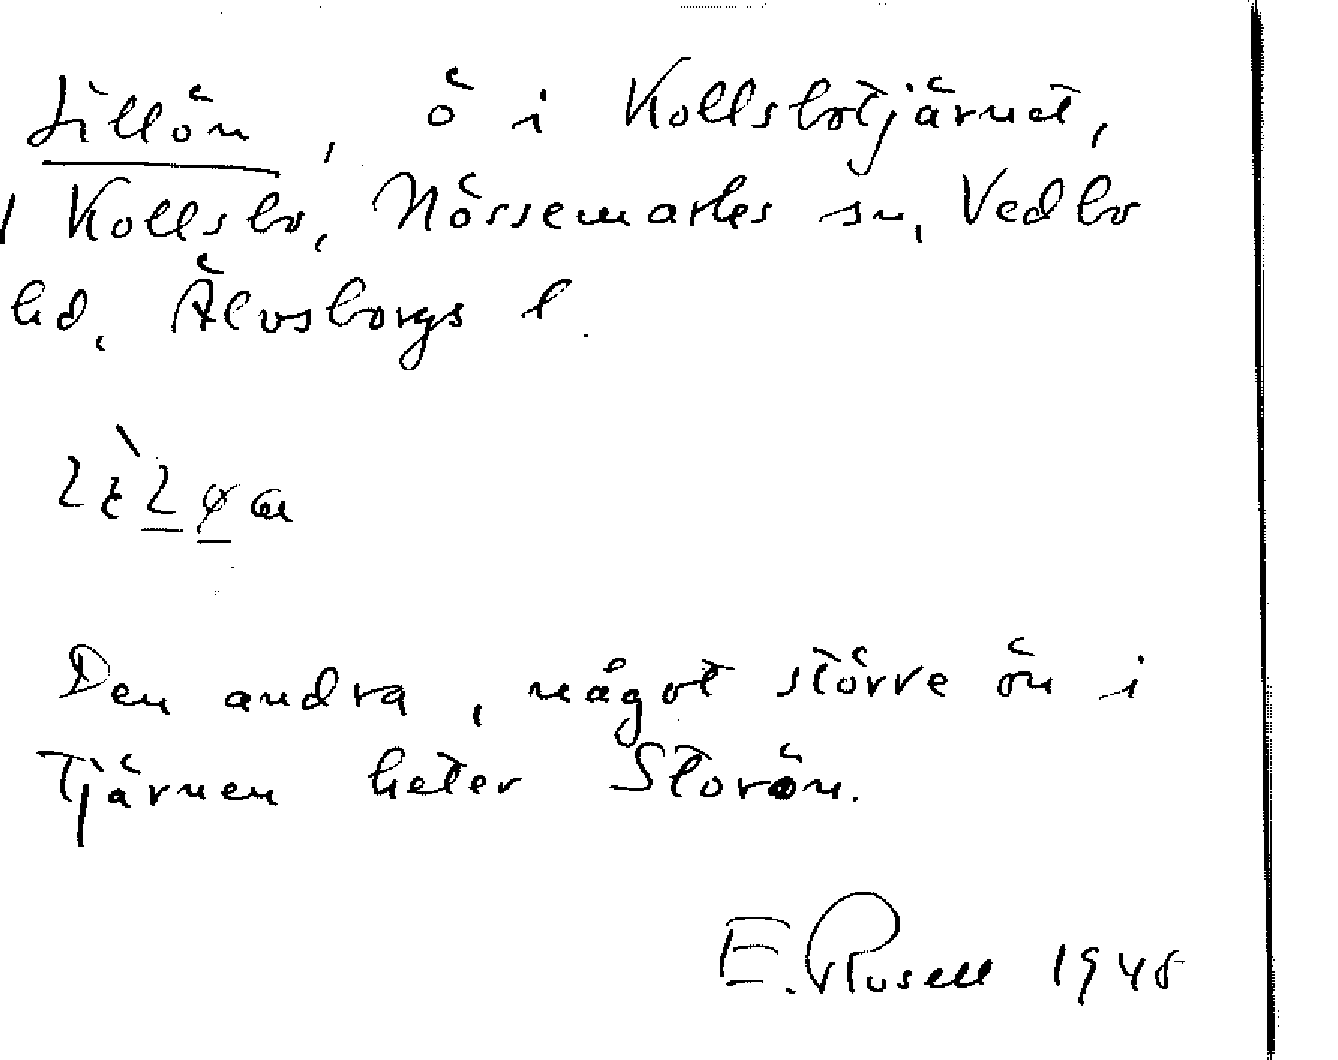 Lillön, ö i Kollsbotjärnet,
/ Kollsbo, Nössemarks sn, Vedbo
hd, Älvsborgs l.
Den andra, något större ön i
tjärnen heter Storön.
E. Rosell 1948